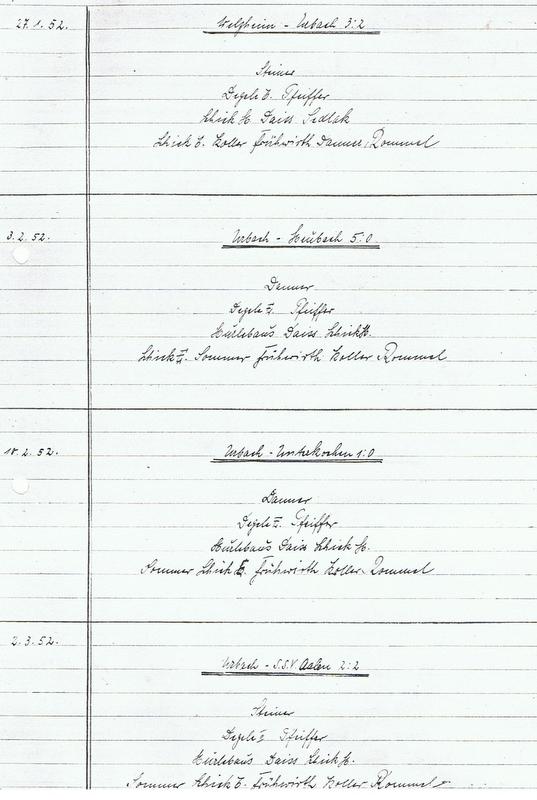 27.1.52. Welzheim - Urbach 3:2
Steiner
Degele E. Pfeiffer
Schick H. Daiss Sedlak
Schick E. Koller Frühwirth Danner, Rommel
3.2.52. Urbach - Heubach 5:0
Danner
Degele E. Pfeiffer
Hurlebaus Daiss Schick H.
Schick E. Sommer Frühwirth Koller Rommel
10.2.52. Urbach - Unterkochen 1:0
Danner
Degele E. Pfeiffer
Hurlebaus Daiss Schick H.
Sommer Schick E. Frühwirth Koller Rommel
2.3.52.
Urbach - S.S.V. Aalen 2:2
Steiner
Degele E. Pfeiffer
Hurlebaus Daiss Schick H.
Sommer Schick E. Frühwirth Koller Rommel